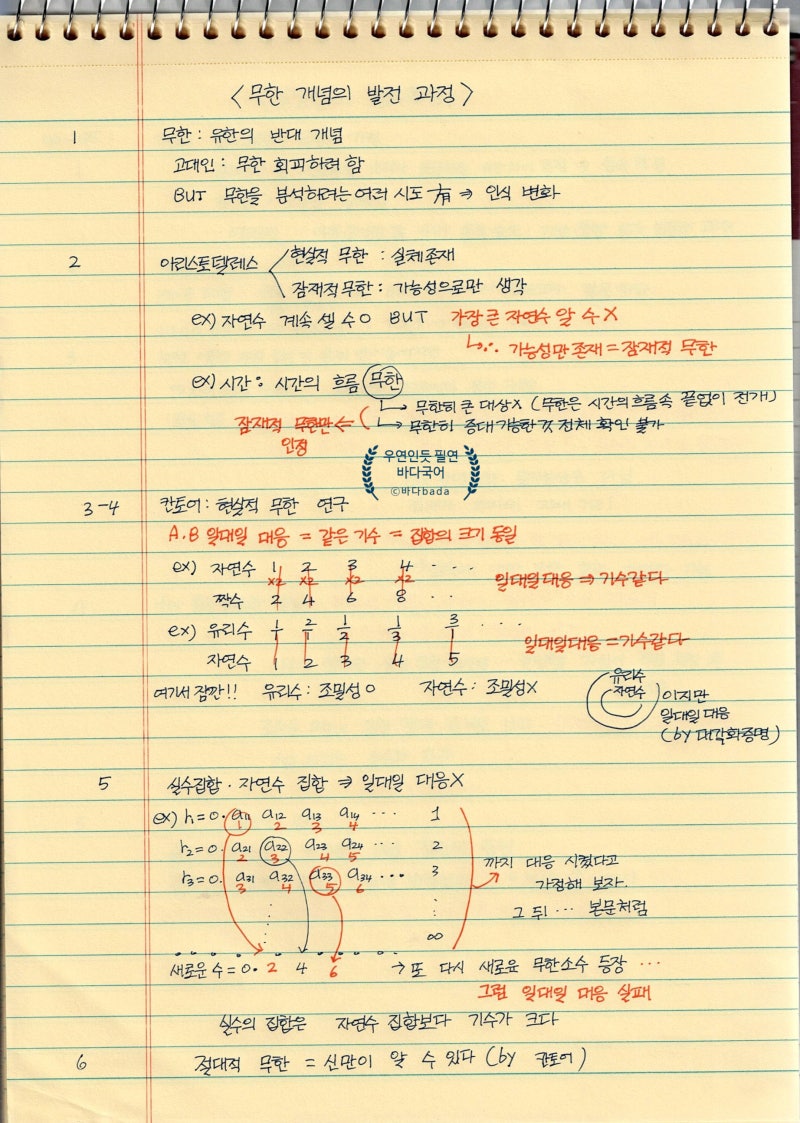 <무한 개념의 발전 과정>
1 무한 : 유한의 반대 개념
고대인 : 무한 회피하려 함
BUT 무한을 분석하려는 여러 시도 有 ⇒ 인식 변화
2 아리스토텔레스 현실적 무한 : 실체 존재
잠재적 무한 : 가능성으로만 생각
ex) 자연수 계속 셀 수 O BUT 가장 큰 자연수 알 수 X
∴ 가능성만 존재 = 잠재적 무한
ex) 시간 : 시간의 흐름 무한
→ 무한히 큰 대상 X (무한은 시간의 흐름 속 끝없이 전개)
→ 무한히 증대 가능한 것 전체 확인 불가
잠재적 무한만 ⇐
인정
우연인듯 필연
바다국어
©바다bada
3-4 칸토어 : 현실적 무한 연구
A.B 일대일 대응 = 같은 기수 = 집합의 크기 동일
ex) 자연수 1 2 3 4 ····
×2 ×2 ×2 ×2
짝수 2 4 6 8 ··
일대일대응 ⇒ 기수같다
ex) 유리수 1/1 2/1 1/2 1/3 3/1 ····
자연수 1 2 3 4 5
일대일대응 = 기수같다
여기서 잠깐!! 유리수 : 조밀성 O 자연수 : 조밀성 X
유리수
자연수
이지만
일대일 대응
(by 대각화증명)
5 실수집합 · 자연수 집합 ⇒ 일대일 대응 X
ex) r₁=0. a11 a12 a13 a14 ··· 1
1 2 3 4
r2=0. a21 a22 a23 a24 ··· 2
2 3 4 5
r3=0. a31 a32 a33 a34 ··· 3
3 4 5 6
∞
까지 대응 시켰다고
가정해 보자.
그 뒤 ··· 본문처럼
새로운 수 = 0. 2 4 6 → 또 다시 새로운 무한소수 등장 ···
그럼 일대일 대응 실패
실수의 집합은 자연수 집합보다 기수가 크다
6 절대적 무한 = 신만이 알 수 있다 (by 칸토어)